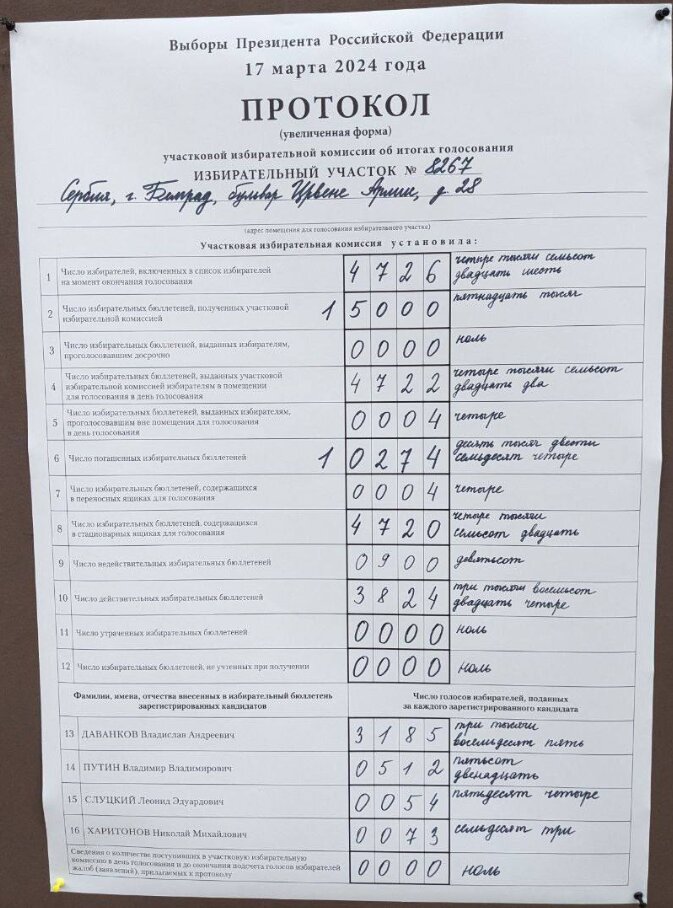 Выборы Президента Российской Федерации
17 марта 2024 года
ПРОТОКОЛ
(увеличенная форма)
участковой избирательной комиссии об итогах голосования
ИЗБИРАТЕЛЬНЫЙ УЧАСТОК № 8267
Сербия, г. Белград, булвар Црвене Армие, д. 28
(адрес помещения для голосования избирательного участка)
Участковая избирательная комиссия установила:
1 Число избирателей, включенных в список избирателей
на момент окончания голосования 4 7 2 6 четыре тысячи семьсот
двадцать шесть
2 Число избирательных бюллетеней, полученных участковой
избирательной комиссией 1 5 0 0 0 пятнадцать тысяч
3 Число избирательных бюллетеней, выданных избирателям,
проголосовавшим досрочно 0 0 0 0 ноль
4 Число избирательных бюллетеней, выданных участковой
избирательной комиссией избирателям в помещении
для голосования в день голосования 4 7 2 2 четыре тысячи семьсот
двадцать два
5 Число избирательных бюллетеней, выданных избирателям,
проголосовавшим вне помещения для голосования
в день голосования 0 0 0 4 четыре
6 Число погашенных избирательных бюллетеней 1 0 2 7 4 десять тысяч двести
семьдесят четыре
7 Число избирательных бюллетеней, содержащихся
в переносных ящиках для голосования 0 0 0 4 четыре
8 Число избирательных бюллетеней, содержащихся
в стационарных ящиках для голосования 4 7 2 0 четыре тысячи
семьсот двадцать
9 Число недействительных избирательных бюллетеней 0 9 0 0 девятьсот
10 Число действительных избирательных бюллетеней 3 8 2 4 три тысячи восемьсот
двадцать четыре
11 Число утраченных избирательных бюллетеней 0 0 0 0 ноль
12 Число избирательных бюллетеней, не учтенных при получении 0 0 0 0 ноль
Фамилии, имена, отчества внесенных в избирательный бюллетень
зарегистрированных кандидатов
Число голосов избирателей, поданных
за каждого зарегистрированного кандидата
13 ДАВАНКОВ Владислав Андреевич 3 1 8 5 три тысячи
восемьдесят пять
14 ПУТИН Владимир Владимирович 0 5 1 2 пятьсот
двенадцать
15 СЛУЦКИЙ Леонид Эдуардович 0 0 5 4 пятьдесят четыре
16 ХАРИТОНОВ Николай Михайлович 0 0 7 3 семьдесят три
Сведения о количестве поступивших в участковую избирательную
комиссию в день голосования и до окончания подсчета голосов избирателей
жалоб (заявлений), прилагаемых к протоколу 0 0 0 0 ноль